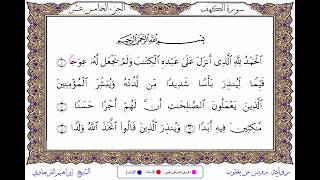 سورة الكهف
الجزء الخامس عشر
بِسْمِ اللَّهِ الرَّحْمَٰنِ الرَّحِيمِ
الْحَمْدُ لِلَّهِ الَّذِي أَنزَلَ عَلَىٰ عَبْدِهِ الْكِتَٰبَ وَلَمْ يَجْعَل لَّهُ عِوَجًا
قَيِّمًا لِّيُنذِرَ بَأْسًا شَدِيدًا مِّن لَّدُنْهُ وَيُبَشِّرَ الْمُؤْمِنِينَ
الَّذِينَ يَعْمَلُونَ الصَّٰلِحَٰتِ أَنَّ لَهُمْ أَجْرًا حَسَنًا ١
مَّٰكِثِينَ فِيهِ أَبَدًا ٢ وَيُنذِرَ الَّذِينَ قَالُوا اتَّخَذَ اللَّهُ وَلَدًا
رواية رويس عن يعقوب
الشيخ إبراهيم الفرجاوي